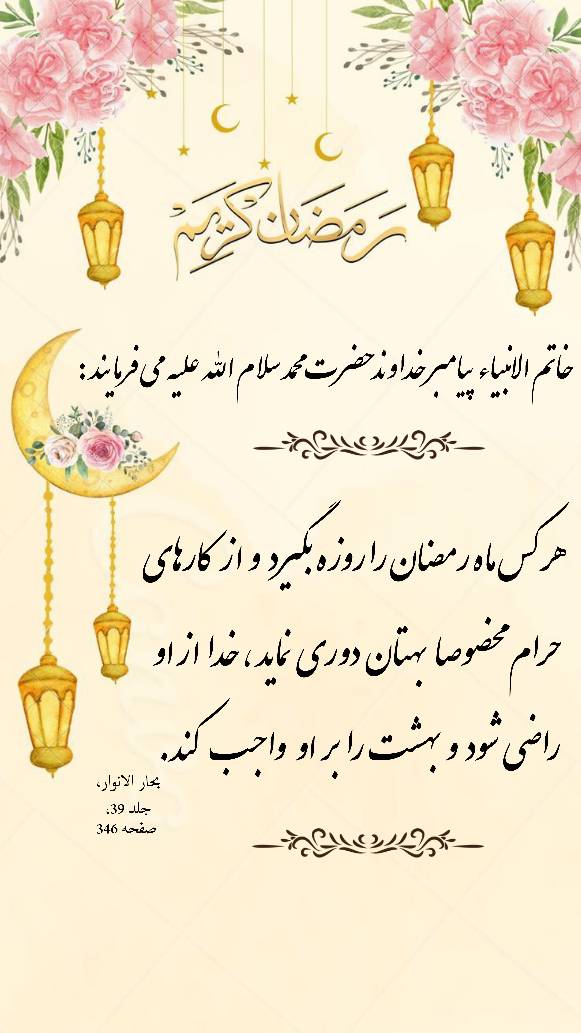 رمضان كريم
خاتم الانبیاء پیامبر خداوند حضرت محمد سلام الله علیه می فرمایند:
هر کس ماه رمضان را روزه بگیرد و از کارهای
حرام مخصوصا بهتان دوری نماید، خدا از او
راضی شود و بهشت را بر او واجب کند.
بحار الانوار،
جلد 39،
صفحه 346